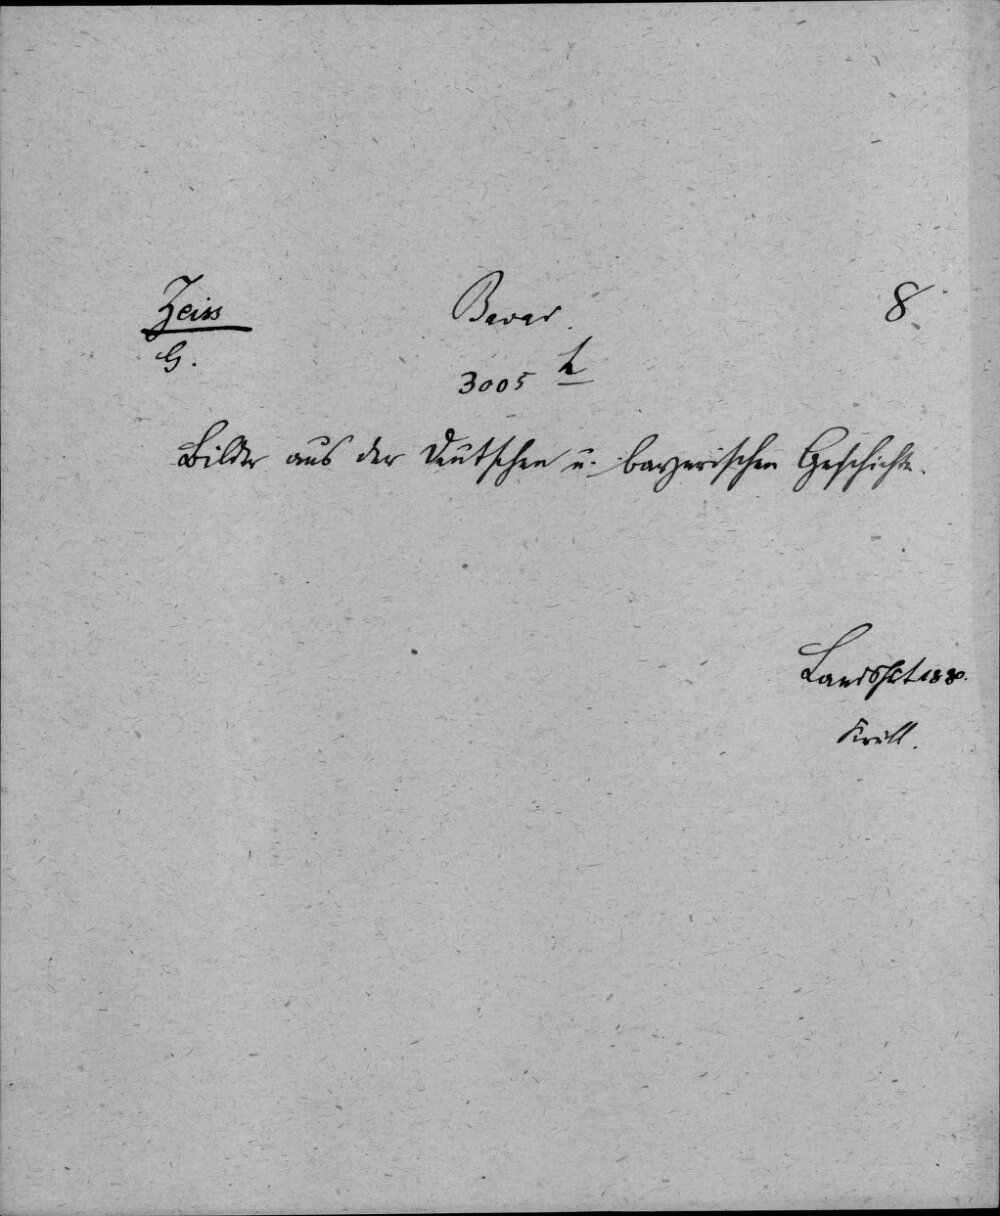 Zeiss
G.
Bavar.
8
3005 h
Bilder aus der deutschen u. bayerischen Geschichte.
Landshut 1880.
Krüll.